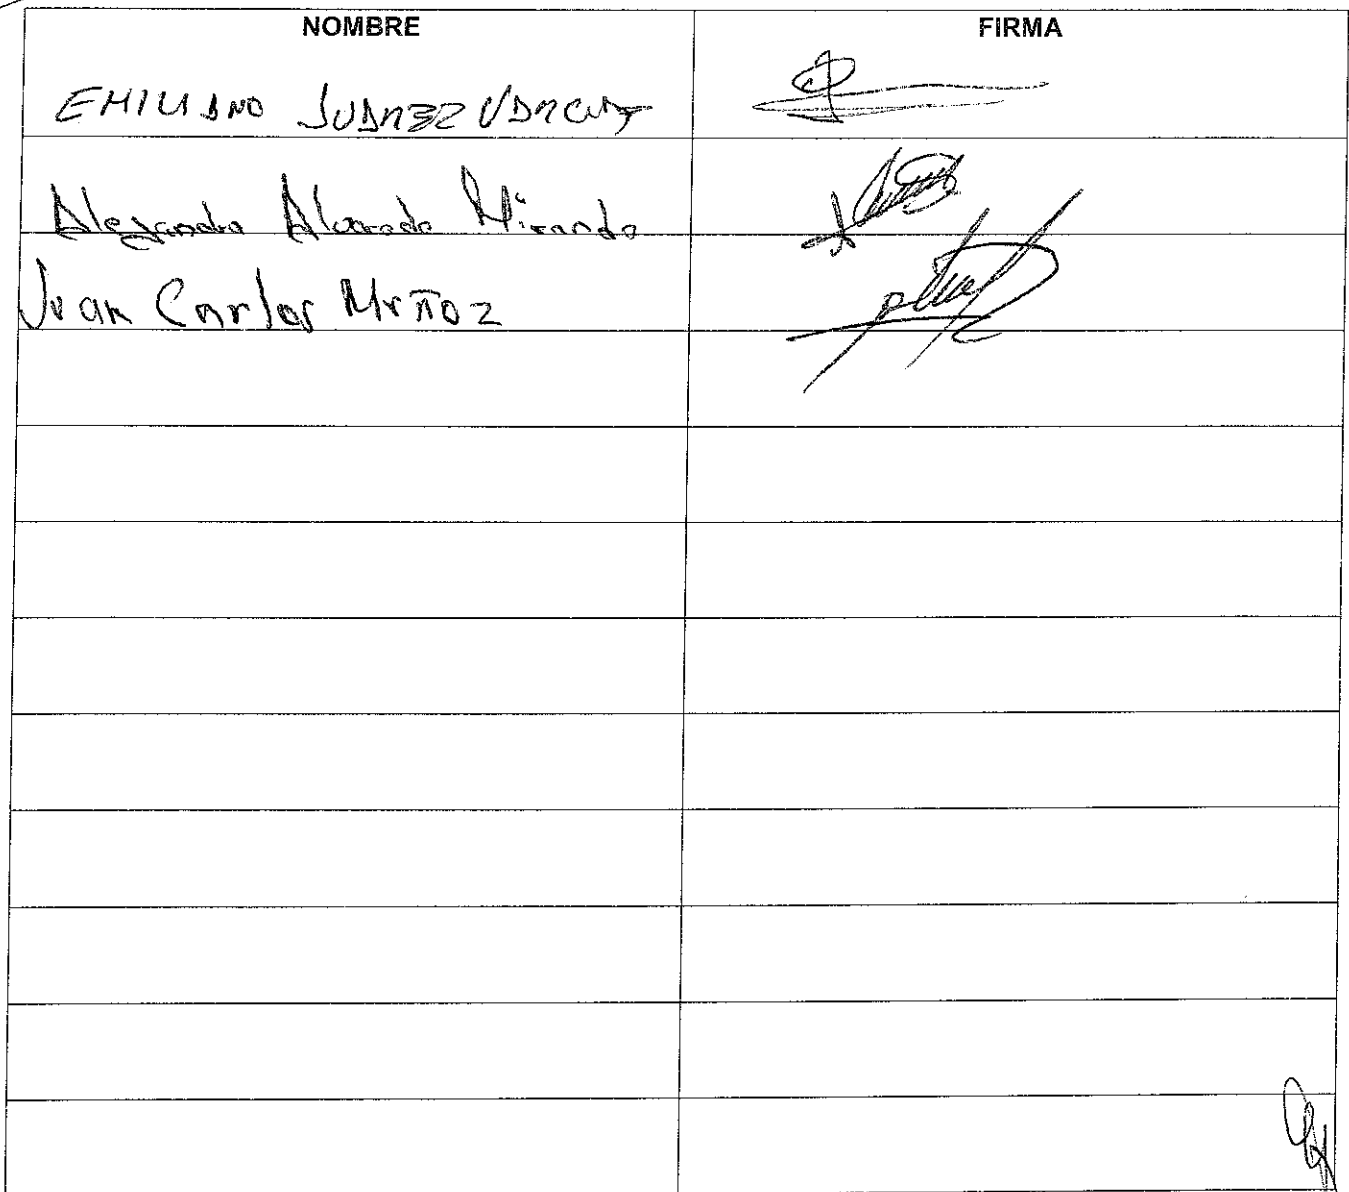 NOMBRE FIRMA
EMILIANO JUAREZ VARGAS
Alejandro Alvarado Miranda
Juan Carlos Muñoz